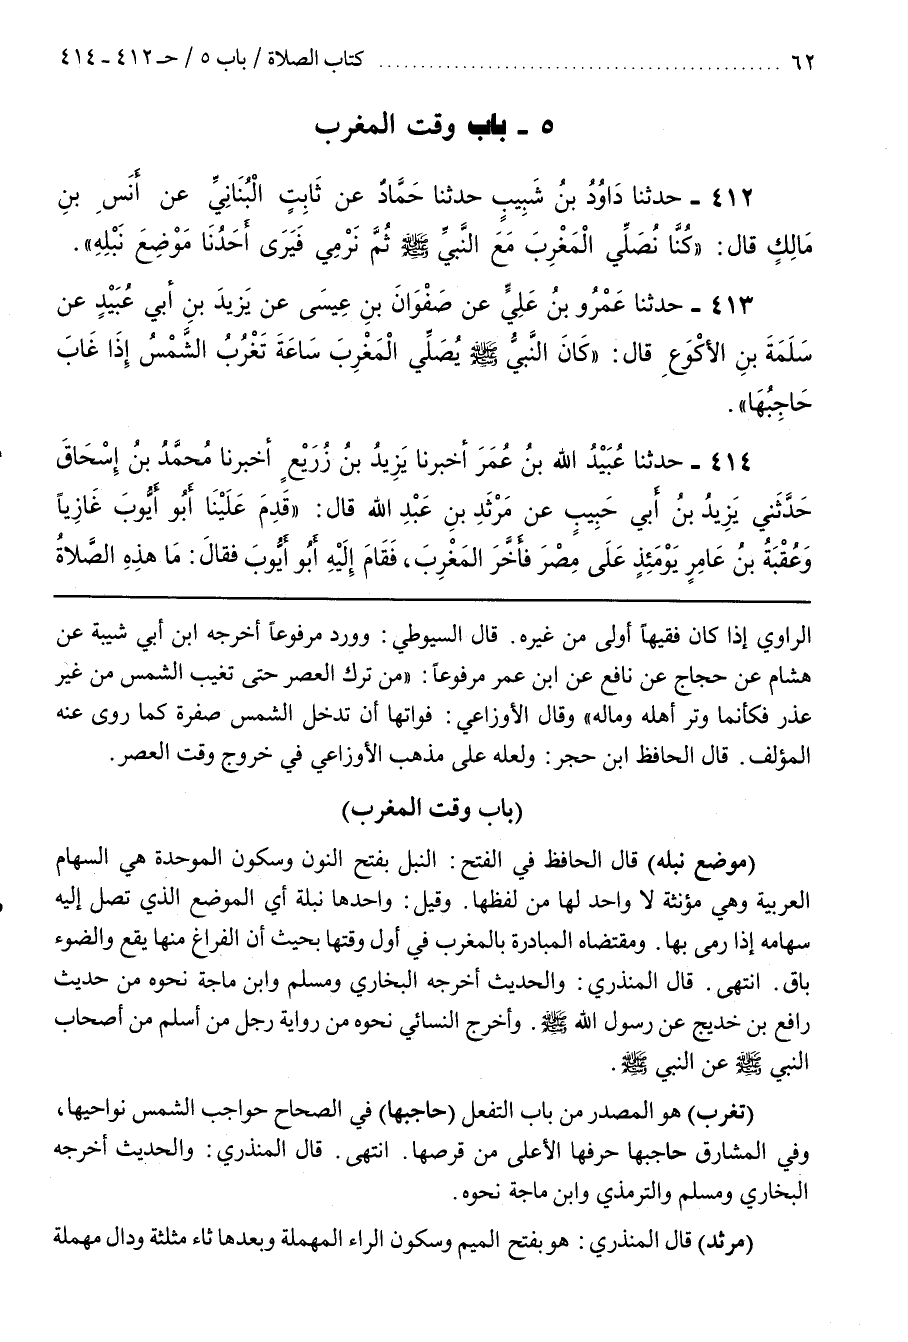 ٦٢ ........................................ كتاب الصلاة / باب ٥ / حـ ٤١٢ - ٤١٤
٥ - باب وقت المغرب
٤١٢ - حدثنا دَاوُدُ بنُ شَبِيبٍ حدثنا حَمَّادٌ عن ثَابِتٍ الْبُنَانِيِّ عن أَنَسِ بنِ
مَالِكٍ قال: «كُنَّا نُصَلِّي الْمَغْرِبَ مَعَ النَّبيِّ ﷺ ثُمَّ نَرْمِي فَيَرَى أَحَدُنَا مَوْضِعَ نَبْلِهِ».
٤١٣ - حدثنا عَمْرُو بنُ عَلِيٍّ عن صَفْوَانَ بنِ عِيسَى عن يَزِيدَ بنِ أبي عُبَيْدٍ عن
سَلَمَةَ بنِ الأكْوَعِ قال: «كَانَ النَّبيُّ ﷺ يُصَلِّي الْمَغْرِبَ سَاعَةَ تَغْرُبُ الشَّمْسُ إذَا غَابَ
حَاجِبُهَا».
٤١٤ - حدثنا عُبَيْدُ الله بنُ عُمَرَ أخبرنا يَزِيدُ بنُ زُرَيْعٍ أخبرنا مُحمَّدُ بنُ إسْحَاقَ
حَدَّثَني يَزِيدُ بنُ أبي حَبِيبٍ عن مَرْثَدِ بنِ عَبْدِ الله قال: «قَدِمَ عَلَيْنَا أَبُو أَيُّوبَ غَازِياً
وَعُقْبَةُ بنُ عَامِرٍ يَوْمَئِذٍ عَلَى مِصْرَ فأَخَّرَ المَغْرِبَ، فَقَامَ إلَيْهِ أبُو أَيُّوبَ فقالَ: مَا هذِهِ الصَّلاةُ
الراوي إذا كان فقيهاً أولى من غيره. قال السيوطي: وورد مرفوعاً أخرجه ابن أبي شيبة عن
هشام عن حجاج عن نافع عن ابن عمر مرفوعاً: «من ترك العصر حتى تغيب الشمس من غير
عذر فكأنما وتر أهله وماله» وقال الأوزاعي: فواتها أن تدخل الشمس صفرة كما روى عنه
المؤلف. قال الحافظ ابن حجر: ولعله على مذهب الأوزاعي في خروج وقت العصر.
(باب وقت المغرب)
(موضع نبله) قال الحافظ في الفتح: النبل بفتح النون وسكون الموحدة هي السهام
العربية وهي مؤنثة لا واحد لها من لفظها. وقيل: واحدها نبلة أي الموضع الذي تصل إليه
سهامه إذا رمى بها. ومقتضاه المبادرة بالمغرب في أول وقتها بحيث أن الفراغ منها يقع والضوء
باق. انتهى. قال المنذري: والحديث أخرجه البخاري ومسلم وابن ماجة نحوه من حديث
رافع بن خديج عن رسول الله ﷺ. وأخرج النسائي نحوه من رواية رجل من أسلم من أصحاب
النبي ﷺ عن النبي ﷺ.
(تغرب) هو المصدر من باب التفعل (حاجبها) في الصحاح حواجب الشمس نواحيها،
وفي المشارق حاجبها حرفها الأعلى من قرصها. انتهى. قال المنذري: والحديث أخرجه
البخاري ومسلم والترمذي وابن ماجة نحوه.
(مرثد) قال المنذري: هو بفتح الميم وسكون الراء المهملة وبعدها ثاء مثلثة ودال مهملة